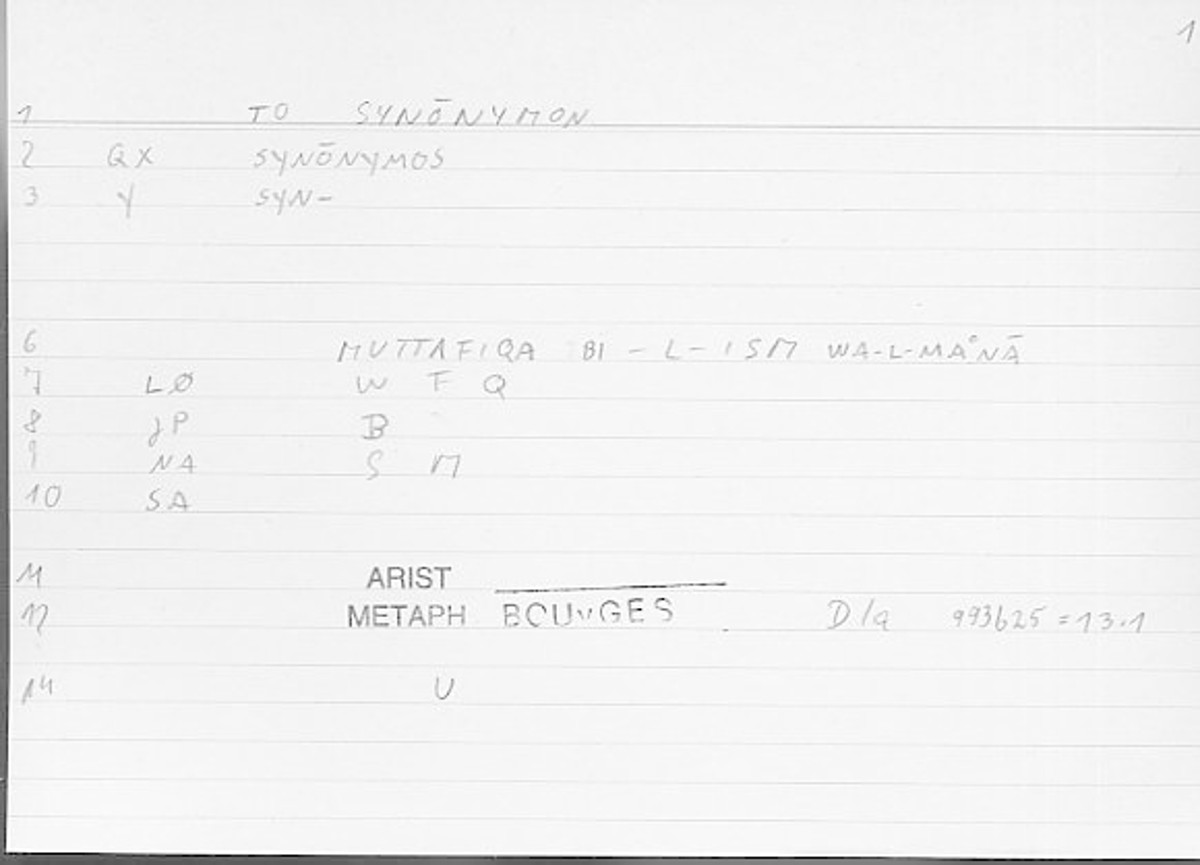 1
1 TO SYNŌNYMON
2 QX SYNŌNYMOS
3 Y SYN-
6 MUTTAFIQA BI-L-ISM WA-L-MA°NĀ
7 LØ W F Q
8 JP B
9 NA S M
10 SA
11 ARIST
12 METAPH BOUYGES D/a 993625=13.1
14 U